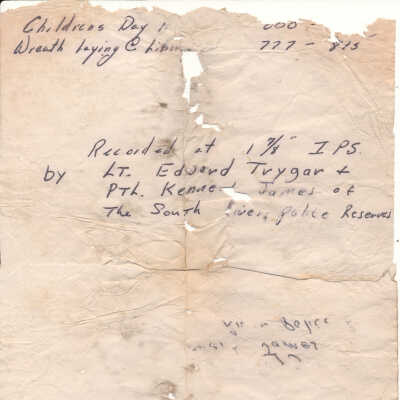 Childrens Day
600 -
Wreath Laying @
777 - 875
Recorded at 1 7/8" IPS.
by Lt. Edward Trygar +
Ptl. Kenne James of
The South River Police Reserves
Police
James